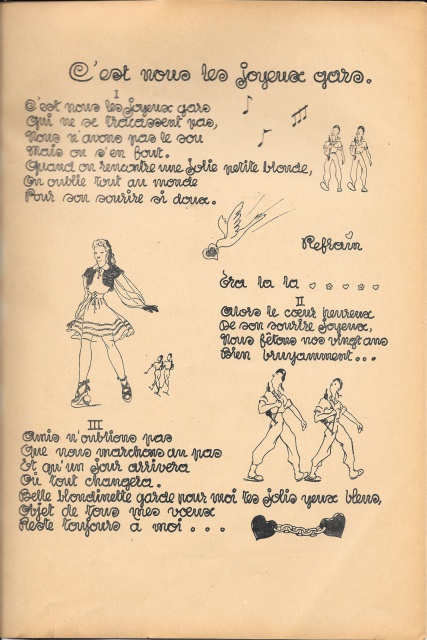 C'est nous les joyeux gars.
I
C'est nous les joyeux gars
Qui ne se tracassent pas,
Nous n'avons pas le sou
Mais on s'en fout.
Quand on rencontre une jolie petite blonde,
On oublie tout au monde
Pour son sourire si doux.
Refrain
Tra la la
II
Alors le cœur heureux
De son sourire joyeux,
Nous fêtons nos vingt ans
Bien bruyamment...
III
Amis n'oublions pas
Que nous marchons au pas
Et qu'un jour arrivera
Où tout changera.
Belle blondinette garde pour moi tes jolis yeux bleus,
Objet de tous mes vœux
Reste toujours à moi....